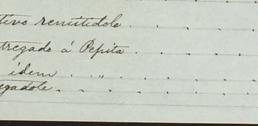 tivo remitidole
tregado á Pepita
idem
gadole